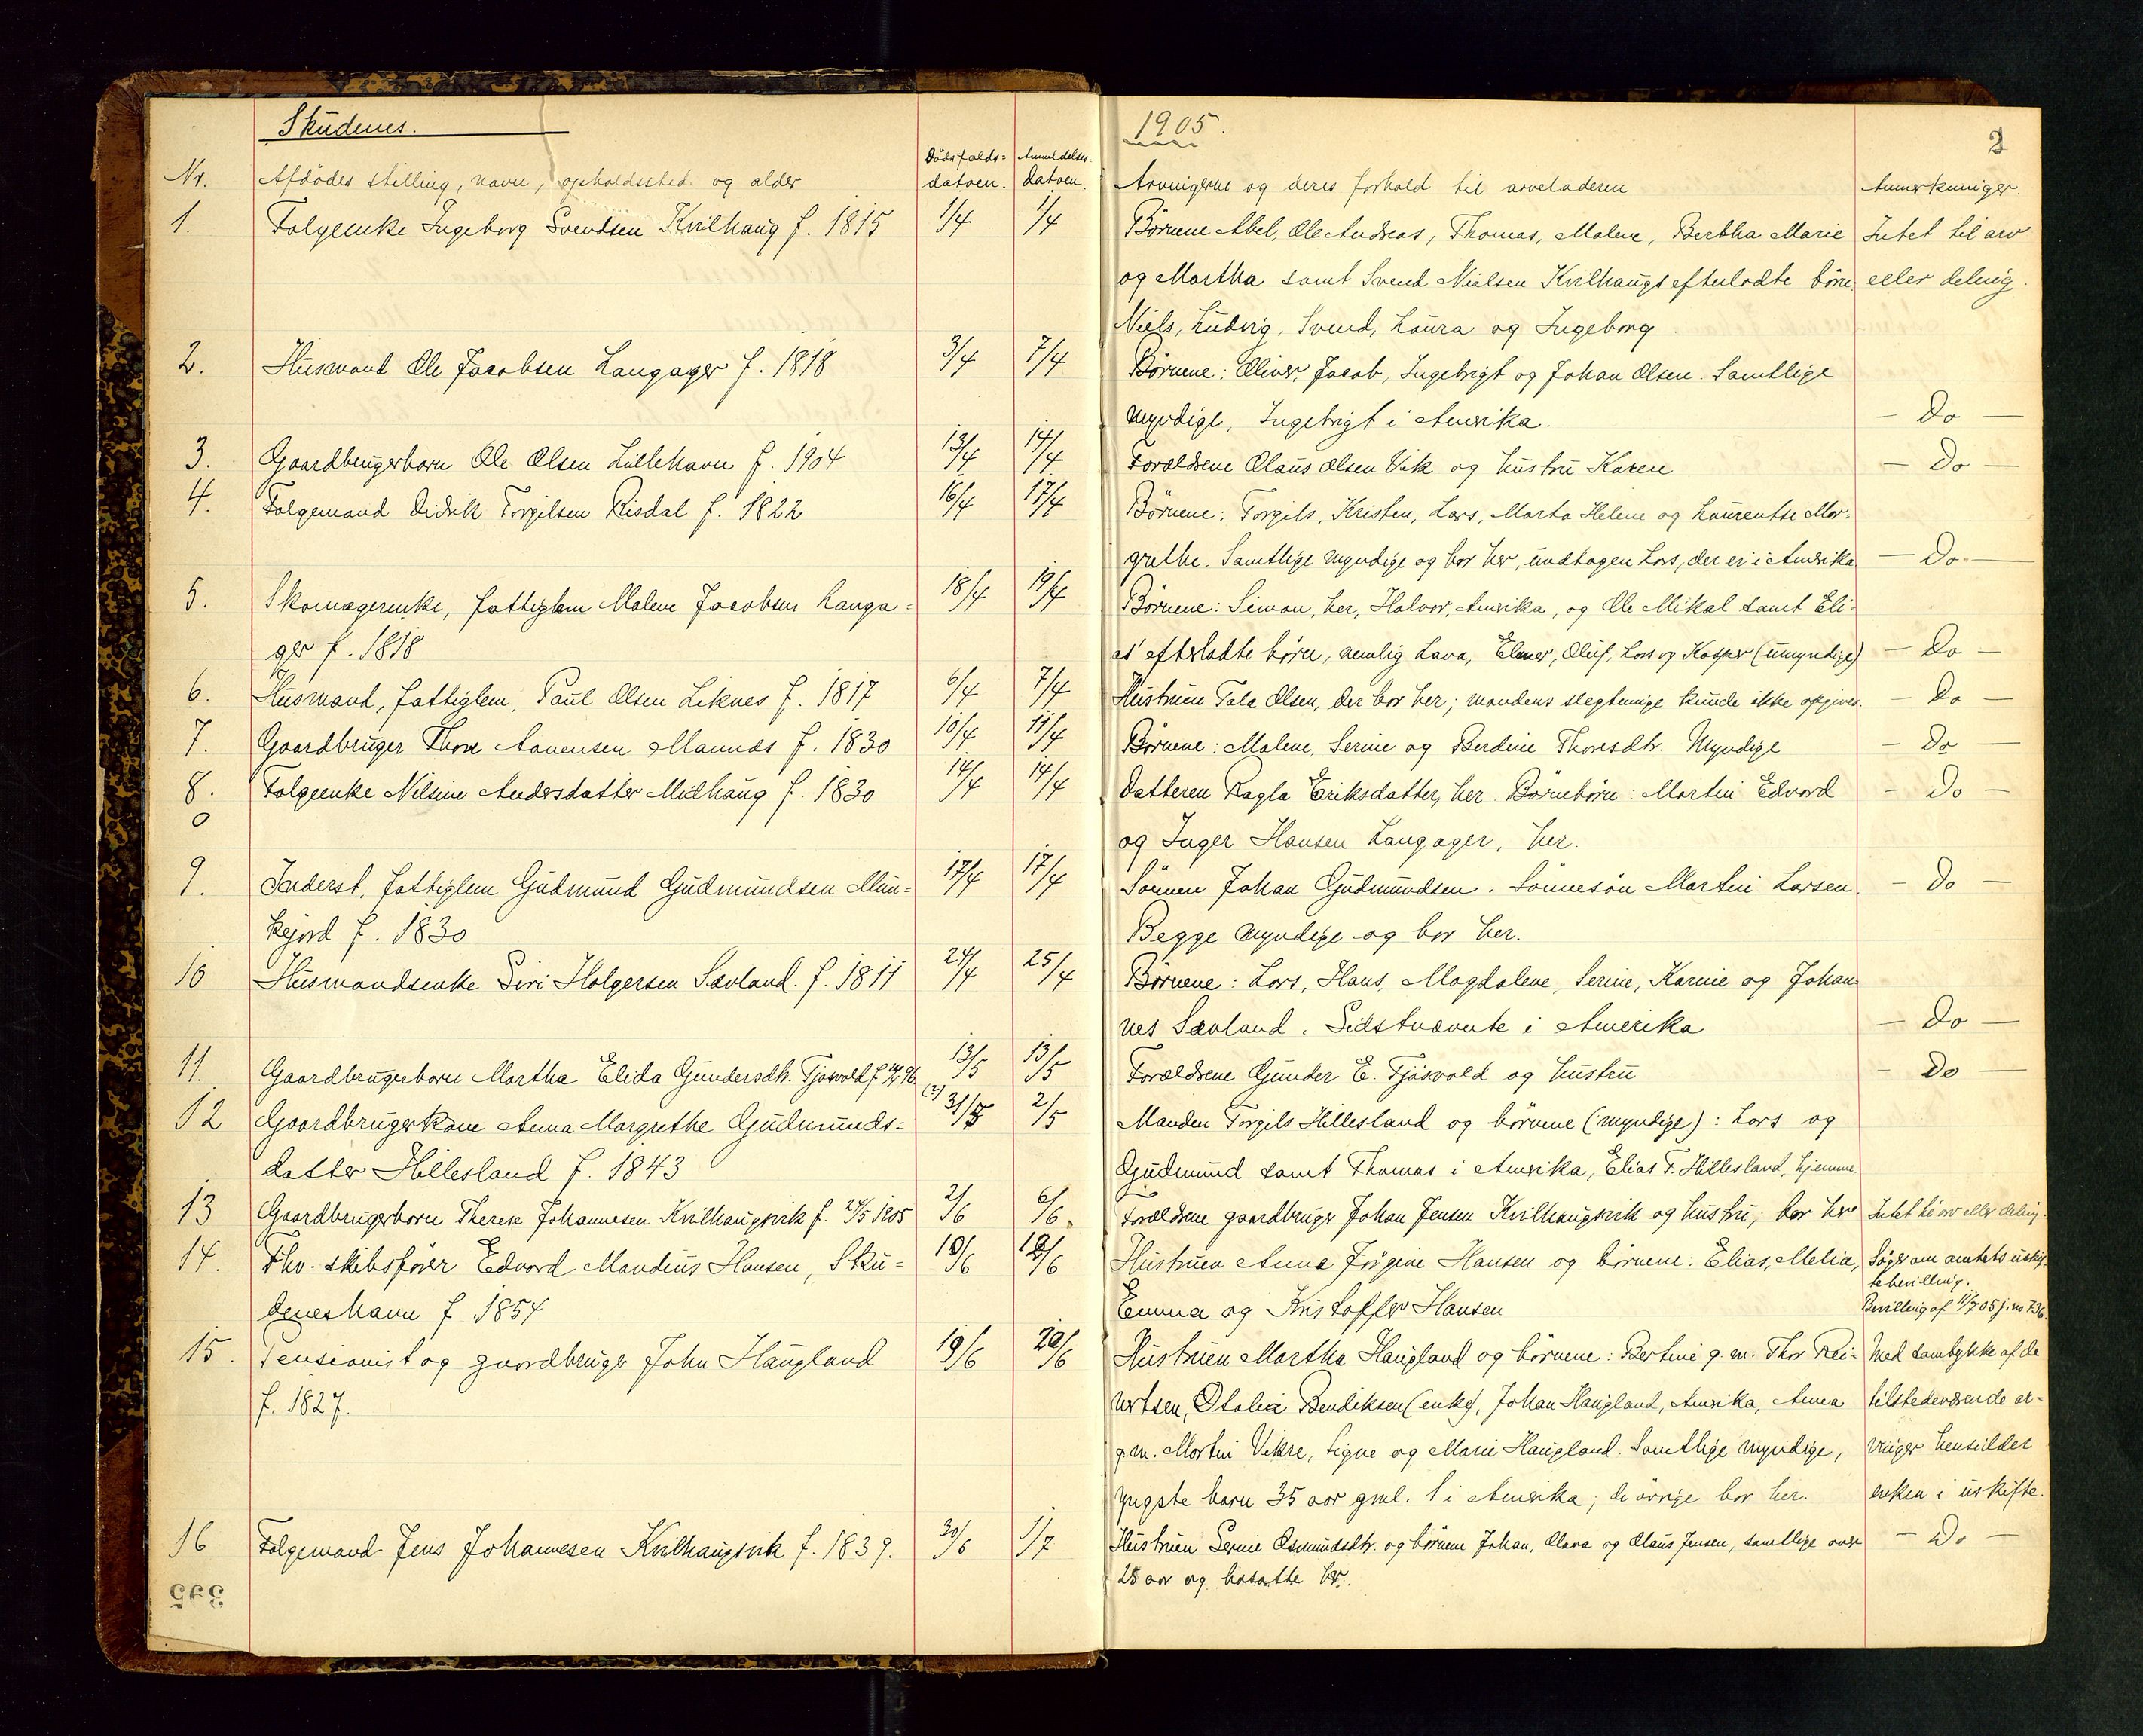 Skudenes.
1905.
2
Nr.
Afdødes stilling, navn, opholdssted og alder
Dødsfalds=
datoen.
Anmeldelses-
datoen.
Arvingerne og deres forhold til arveladeren
Anmerkninger.
1. Folgeenke Ingeborg Svendsen Kvilhaug f. 1815 1/4 1/4 Børnene Abel, Ole Andreas, Thomas, Malene, Bertha Marie Intet til arv
og Martha samt Svend Nielsen Kvilhaugs efterladte børn, eller deling.
Niels, Ludvig, Svend, Laura og Ingeborg.
2. Husmand Ole Jacobsen Langager f. 1818 3/4 7/4 Børnene: Oliver, Jacob, Ingebrigt og Johan Olsen. Samtlige
myndige, Ingebrigt i Amerika. — Do —
3. Gaardbrugerbarn Ole Olsen Lillehavn f. 1904 13/4 14/4 Forældrene Olaus Olsen Vik og hustru Karen — Do —
4. Folgemand Didrik Torgilsen Risdal f. 1822 16/4 17/4 Børnene: Torgils, Kristen, Lars, Marta Helene og Laurentse Mar-
grethe. Samtlige myndige og bor her, undtagen Lars, der er i Amerika — Do —
5. Skomagerenke, fattiglem Malene Jacobsen Langa= 18/4 19/4 Børnene: Simon, her, Halvor, Amerika, og Ole Mikal samt Eli-
ger f. 1818 as' efterladte børn, nemlig Lava, Elmer, Oluf, Lars og Kasper (umyndige) — Do —
6. Husmand, fattiglem, Paul Olsen Liknes f. 1817 6/4 7/4 Hustruen Tala Olsen, der bor her; mandens slegtninge kunde ikke opgives. — Do —
7. Gaardbruger Thore Aanensen Mannes f. 1830 10/4 11/4 Børnene: Malene, Serine og Berdine Thoresdtr. Myndige — Do —
8. Folgeenke Nilsine Andersdatter Midhaug f. 1830 14/4 14/4 Datteren Ragla Eriksdatter, her. Børnebørn: Martin Edvard — Do —
0
og Inger Hansen Langager, her.
9. Inderst, fattiglem Gudmund Gudmundsen Mun= 17/4 17/4 Sønnen Johan Gudmundsen. Sønnesøn Martin Larsen — Do —
kejord f. 1830 Begge myndige og bor her.
10 Husmandsenke Siri Holgersen Sævland. f. 1811 24/4 25/4 Børnene: Lars, Hans, Magdalene, Serine, Karine og Johan-
nes Sævland. Sidstnævnte i Amerika — Do —
11. Gaardbrugerbarn Martha Elida Gundersdtr. Tjøsvold f. 96 13/5 13/5 Forældrene Gunder E. Tjøsvold og hustru — Do —
12 Gaardbrugerkone Anna Margrethe Gudmunds= (?) 31/5 2/5 Manden Torgils Hillesland og børnene (myndige): Lars og
datter Hillesland f. 1843 Gudmund samt Thomas i Amerika, Elias T. Hillesland, hjemme.
13 Gaardbrugerbarn Therese Johannesen Kvilhaugsvik f. 24/5 1905 2/6 6/6. Forældrene gaardbruger Johan Jensen Kvilhaugsvik og hustru, bor her Intet til arv eller deling.
14. Fhv. skibsfører Edvard Mandius Hansen, Sku= 10/6 12/6 Hustruen Anna Jørgine Hansen og børnene: Elias, Melia, Søger om amtets uskif-
tebevilling.
deneshavn f. 1854 Emma og Kristoffer Hansen Bevilling af 11/7 05 j. no 736.
15. Pensionist og gaardbruger John Haugland 19/6 20/6 Hustruen Martha Haugland og børnene: Bertine g. m. Thor Rei- Med samtykke af de
f. 1827. nertsen, Otalia Bendiksen (enke), Johan Haugland, Amerika, Anna tilstedeværende ar-
g.m. Martin Vikre, Signe og Marie Haugland. Samtlige myndige, vinger hensidder
yngste barn 35 aar gml. 1 i Amerika; de øvrige bor her. enken i uskifte.
16 Folgemand Jens Johannesen Kvilhaugsvik f. 1839. 30/6 1/7 Hustruen Serine Osmundsdtr. og børnene Johan, Olava og Olaus Jensen, samtlige over — Do —
25 aar og bosatte her.
395